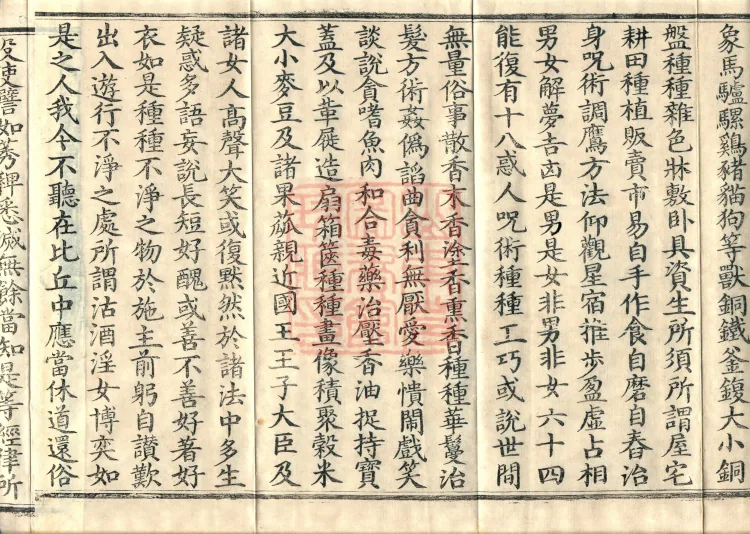 象馬驢騾鷄猪貓狗等獸銅鐵釜鍑大小銅
盤種種雜色牀敷臥具資生所須所謂屋宅
耕田種植販賣市易自手作食自磨自舂治
身咒術調鷹方法仰觀星宿推步盈虛占相
男女解夢吉凶是男是女非男非女六十四
能復有十八惑人咒術種種工巧或說世間
無量俗事散香末香塗香熏香種種華鬘治
髮方術姦僞諂曲貪利無厭愛樂憒鬧戲笑
談說貪嗜魚肉和合毒藥治壓香油捉持寶
蓋及以革屣造扇箱篋種種畫像積聚穀米
大小麥豆及諸果蓏親近國王王子大臣及
諸女人高聲大笑或復默然於諸法中多生
疑惑多語妄說長短好醜或善不善好著好
衣如是種種不淨之物於施主前躬自讚歎
出入遊行不淨之處所謂沽酒淫女博奕如
是之人我今不聽在比丘中應當休道還俗
役使譬如莠稗悉滅無餘當知是等經律所